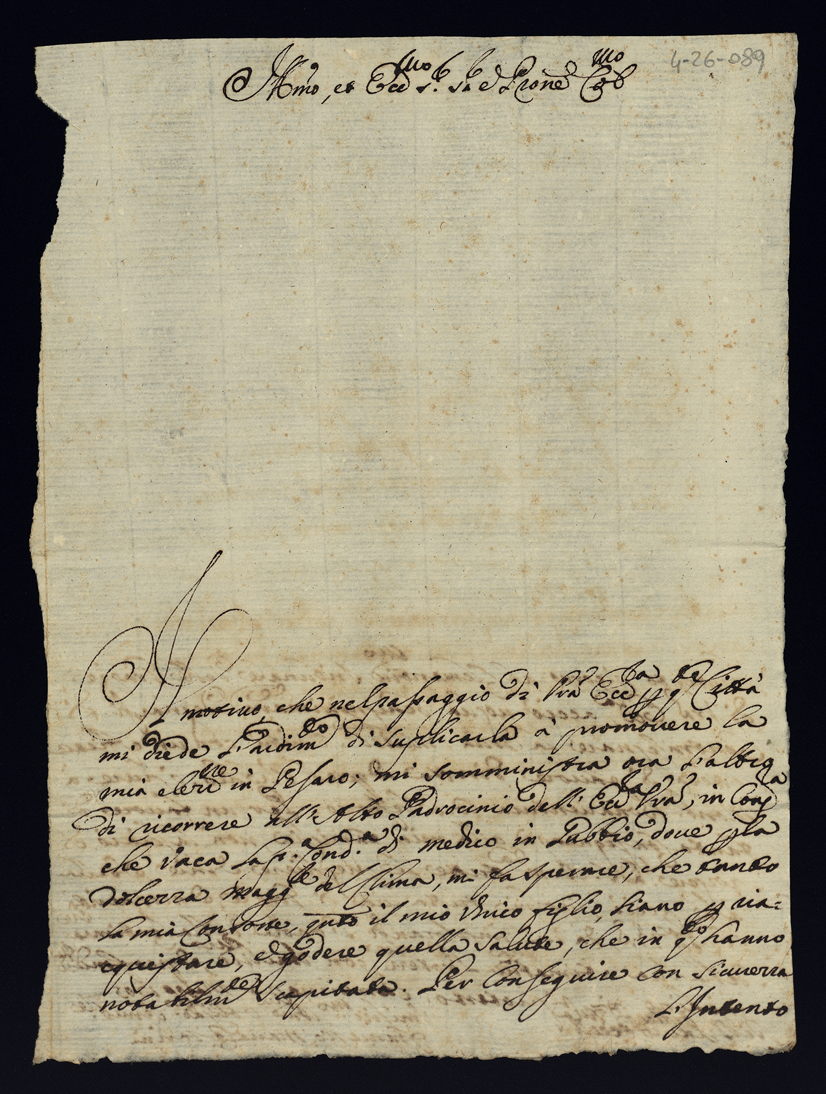 4-26-089
Ill.mo, et Ecc.mo Sig.r Sig.r e Prone Col.mo
Il motivo, che nel passaggio di Vra Ecc.za p q.ta Città
mi diede l'ardim.to di suplicarla à promovere la
mia elez.ne in Pesaro; mi somministra ora l'altra
di ricorrere all'Alto Padrocinio dell'Ecc.za Vra, in Cong.a
che vaca la p.a Cond.a di medico in Gubbio, dove p la
dolcezza magg.re del Clima, mi fa sperare, che tanto
la mia Consorte, q.nto il mio Unico figlio, siano p ria=
cquistare, e godere quella Salute, che in q.o hanno
notabilm.te scapitata. Per Conseguire con sicurezza
l'Intento